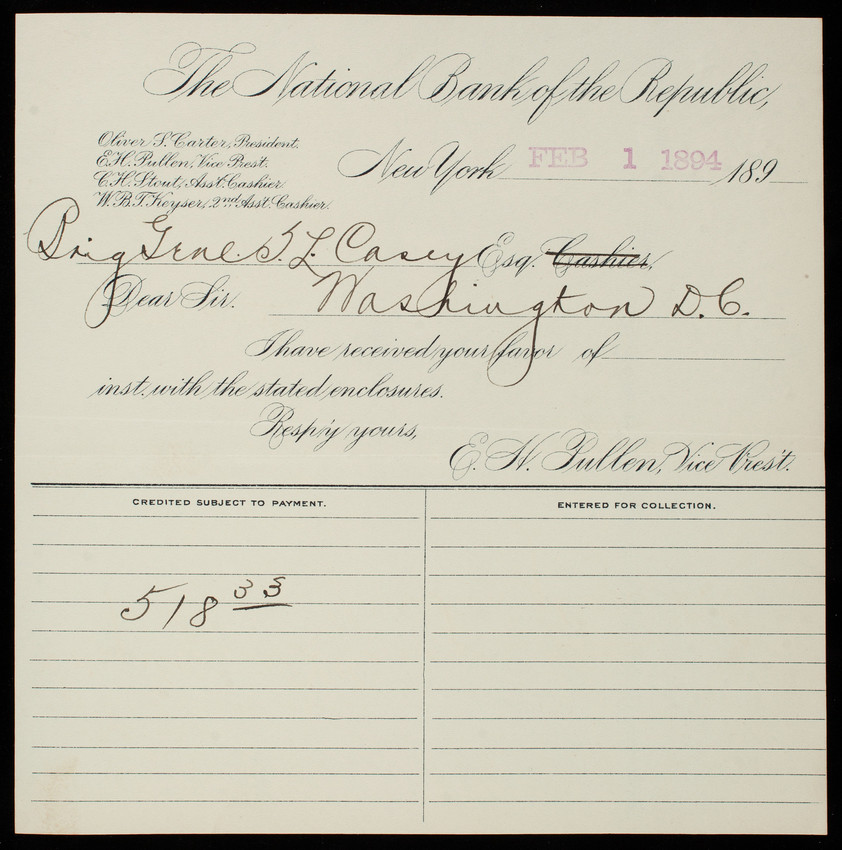 The National Bank of the Republic,
Oliver S. Carter, President.
E.H. Pullen, Vice Prest.
C.H. Stout, Asst. Cashier.
W.B.T. Keyser, 2nd Asst. Cashier.
New York FEB 1 1894 189
Brig Genl. T. L. Casey Esq. Cashier,
Dear Sir. Washington D.C.
I have received your favor of
inst. with the stated enclosures.
Resp'y yours,
E. H. Pullen, Vice Prest.
CREDITED SUBJECT TO PAYMENT.
ENTERED FOR COLLECTION.
518 33